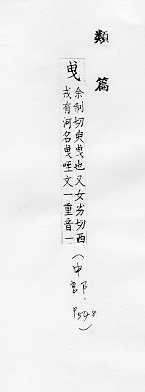 類篇
曳
余制切臾曳也又女劣切西
戎有河名曳咥文一重音一
(申部．P548)